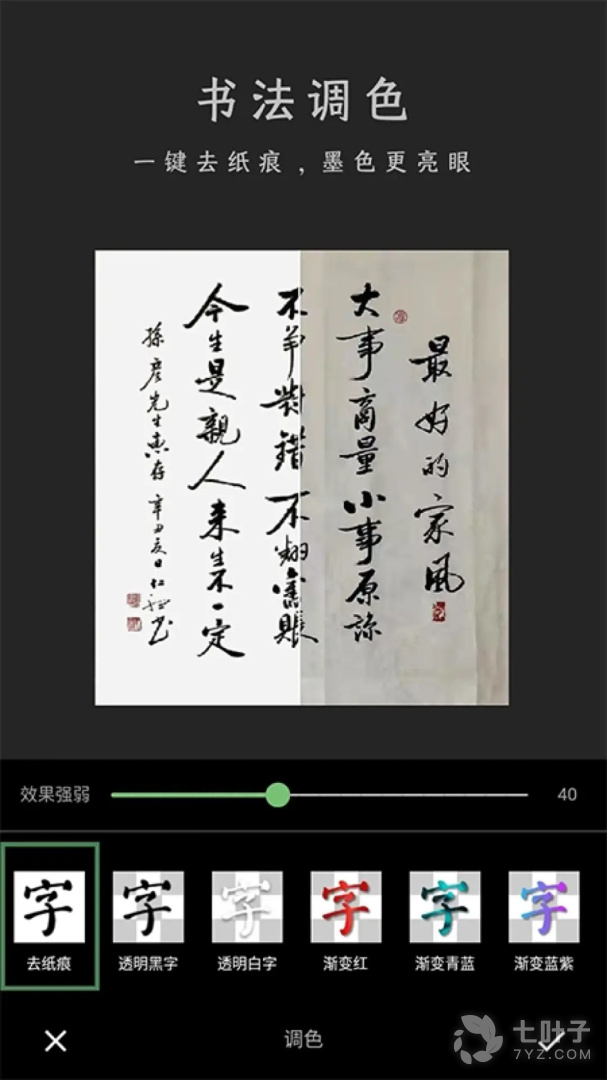 书法调色
一键去纸痕，墨色更亮眼
最好的家风
大事商量小事原谅
不争对错不翻旧账
今生是親人来生不一定
孫彦先生惠存
辛丑夏日仁
效果强弱 40
字 字 字 字 字 字
去纸痕 透明黑字 透明白字 渐变红 渐变青蓝 渐变蓝紫
调色
七叶子
7YZ.COM